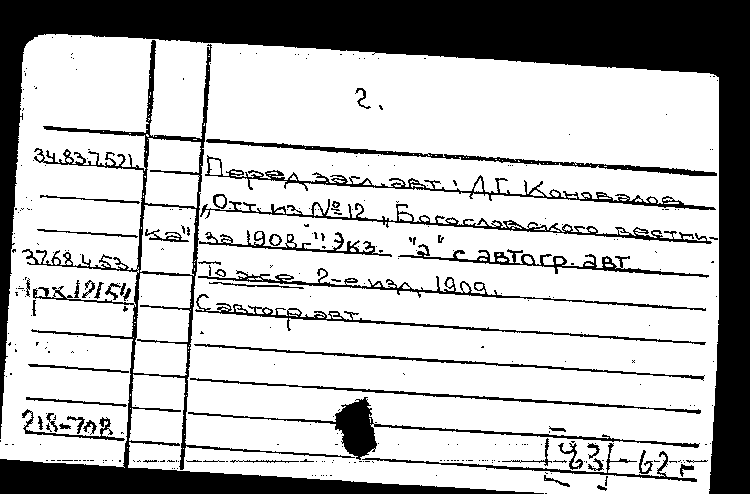 2.
34.83.7.521. Перед загл. авт.: Д.Г. Коновалов
„Отт. из №12 „Богословского вестни-
ка" за 1908г." Экз. "а" с автогр. авт.
37.68.4.53. То же. 2-е изд. 1909.
Арх.12154 С автогр. авт.
218-708
[ЧЗ]-62г